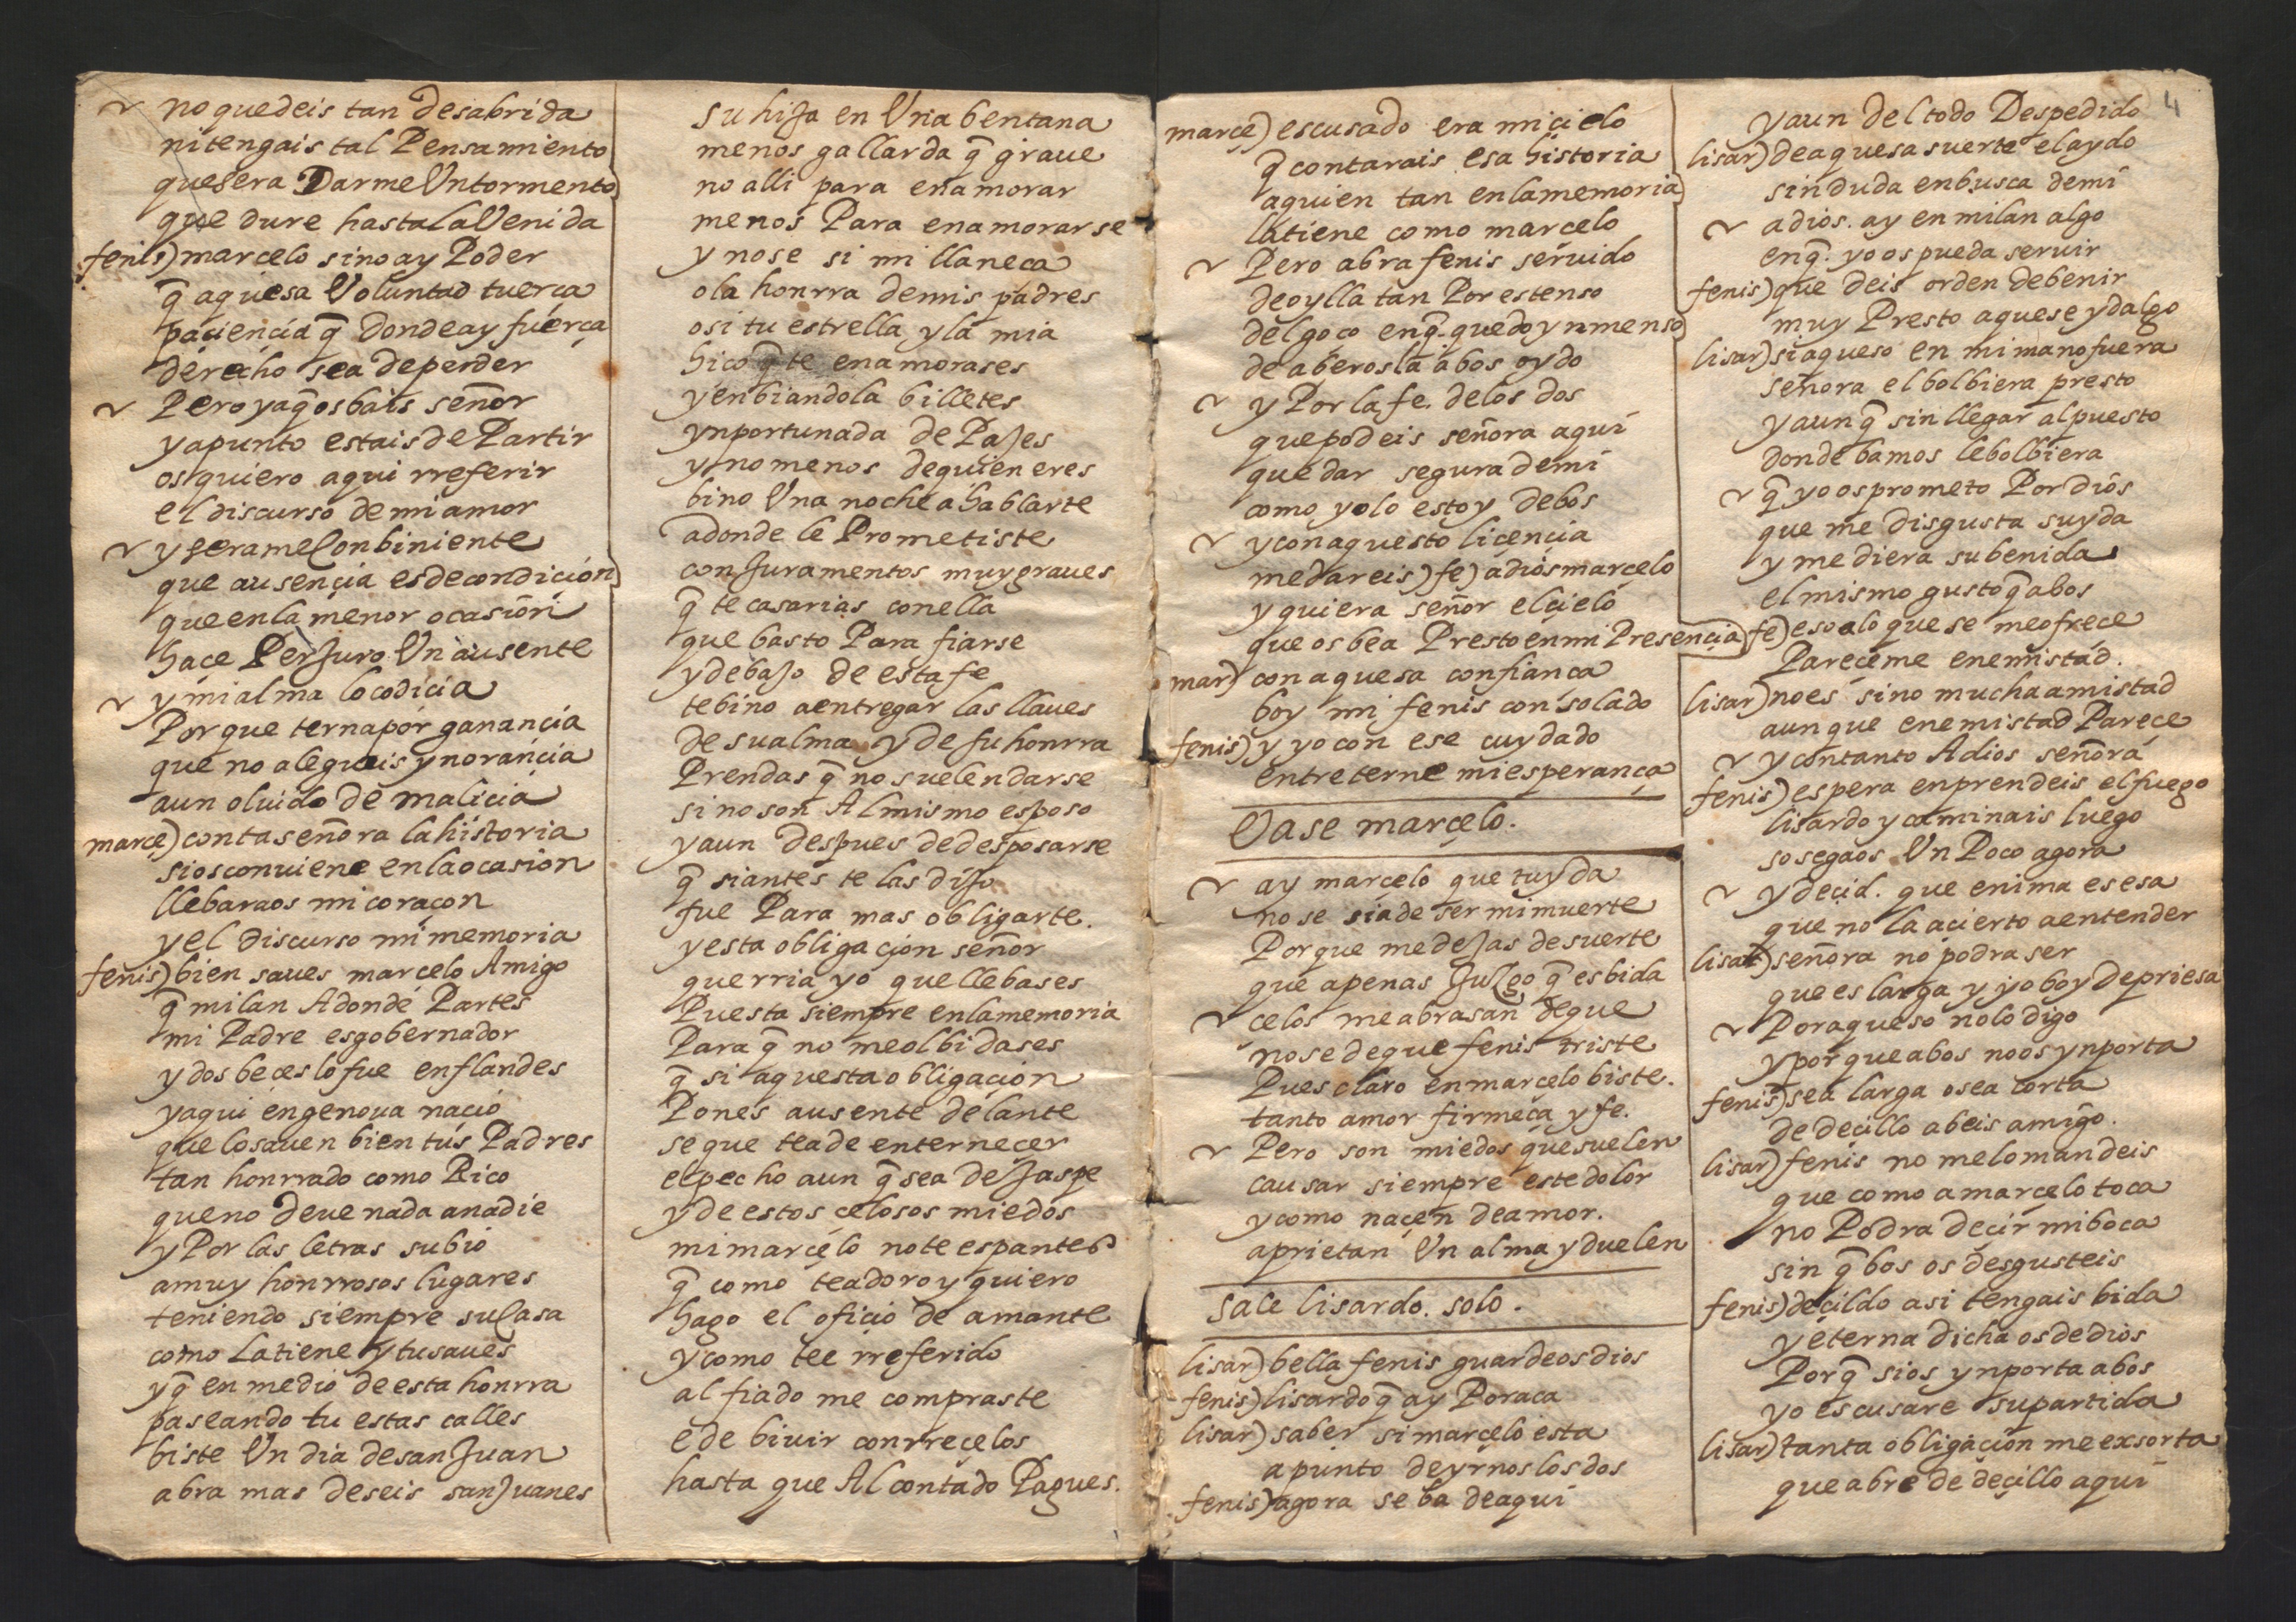 no quedeis tan desabrida
ni tengais tal Pensamiento
que sera Darme Un tormento
que dure hasta la Venida
fenis) marcelo si no ay Poder
q̃ aquesa Voluntad tuerça
paciencia q̃ donde ay fuerça
derecho sea de perder
Pero ya q̃ os bais señor
y a punto estais de Partir
os quiero aqui rreferir
el discurso de mi amor
y serame Conbiniente
que ausençia es de condiçion
que en la menor ocasion
haçe PerJuro Un ausente
y mi alma lo codiçia
Por que terna por ganançia
que no alegueis ynorançia
a un oluido de maliçia
marçe) conta señora la historia
si os conuiene en la ocasion
llebaraos mi coraçon
y el discurso mi memoria
fenis) bien saues marçelo Amigo
q̃ milan Adonde Partes
mi Padre es gobernador
y dos beçes lo fue en flandes
y aqui en genoua naçio
que lo sauen bien tus Padres
tan honrrado como Rico
que no deue nada a nadie
y Por las letras subio
a muy honrrosos lugares
teniendo siempre su Casa
como La tiene y tu saues
y q̃ en medio de esta honrra
paseando tu estas calles
biste Un dia de san Juan
abra mas de seis san Juanes
su hiJa en Una bentana
menos gallarda q̃ graue
no alli para enamorar
menos Para enamorarse
y no se si mi llaneça
o la honrra de mis padres
o si tu estrella y la mia
hiço q̃ te enamorases
y enbiandola billetes
ynportunada de PaJes
y no menos de quien eres
bino Una noche a hablarte
adonde le Prometiste
con Juramentos muy graues
q̃ te casarias con ella
que basto Para fiarse
y debaJo de esta fe
te bino a entregar las llaues
de su alma y de su honrra
Prendas q̃ no suelen darse
si no son Al mismo esposo
y aun despues de desposarse
q̃ si antes te las diJo
fue Para mas obligarte.
y esta obligaçion señor
querria yo que llebases
Puesta siempre en la memoria
Para q̃ no me olbidases
q̃ si aquesta obligaçion
Pones ausente delante
se que te a de enterneçer
el pecho aun q̃ sea de Jaspe
y de estos çelosos miedos
mi marçelo no te espantes
q̃ como te adoro y quiero
hago el ofiçio de amante
y como te e rreferido
al fiado me compraste
e de biuir con rreçelos
hasta que Al contado Pagues.
4
marçe) escusado era mi çielo
q̃ contarais esa historia
a quien tan en la memoria
la tiene como marçelo
Pero abra fenis seruido
de oylla tan Por estenso
del goço en q̃ quedo ynmenso
de aberosla a bos oydo
y Por la fe. de los dos
que podeis señora aqui
quedar segura de mi
como yo lo estoy de bos
y con aquesto liçençia
me dareis) fe) adios marçelo
y quiera señor el çielo
que os bea Presto en mi Presençia
mar) con aquesa confiança
boy mi fenis consolado
fenis) y yo con ese cuydado
entreterne mi esperança
Vase marçelo.
ay marcelo que tu yda
no se si a de ser mi muerte
Por que me deJas de suerte
que apenas Juzgo q̃ es bida
çelos me abrasan de que
no se de que fenis triste
Pues claro en marcelo biste.
tanto amor firmeça y fe.
Pero son miedos que suelen
causar siempre este dolor
y como naçen de amor.
aprietan Un alma y duelen
Sale lisardo. solo.
lisar) bella fenis guardeos dios
fenis) lisardo q̃ ay Por aca
lisar) saber si marçelo esta
a punto de yrnos los dos
fenis) agora se ba de aqui
y aun del todo Despedido
lisar) de aquesa suerte el a ydo
sin duda en busca de mi
adios. ay en milan algo
en q̃. yo os pueda seruir
fenis) que deis orden de benir
muy Presto aquese ydalgo
lisar) si aqueso en mi mano fuera
señora el bolbiera presto
y aun q̃ sin llegar al puesto
donde bamos le bolbiera
q̃ yo os prometo Por dios
que me disgusta su yda
y me diera su benida
el mismo gusto q̃ a bos
fe) eso a lo que se me ofreçe
Pareçeme enemistad.
lisar) no es sino mucha amistad
aun que enemistad Pareçe
y con tanto Adios señora
fenis) espera enprendeis el fuego
lisardo y caminais luego
sosegaos Un Poco agora
y deçid. que enima es esa
que no la açierto a entender
lisar) señora no podra ser
que es larga y yo boy de priesa
Por aqueso no lo digo
y por que a bos no os ynporta
fenis) sea larga o sea corta
de deçillo abeis amigo.
lisar) fenis no me lo mandeis
que como a marçelo toca
no Podra deçir mi boca
sin q̃ bos os desgusteis
fenis) deçildo asi tengais bida
y eterna dicha os de dios
Por q̃ si os ynporta a bos
yo escusare su partida
lisar) tanta obligaçion me exsorta
que abre de deçillo aqui